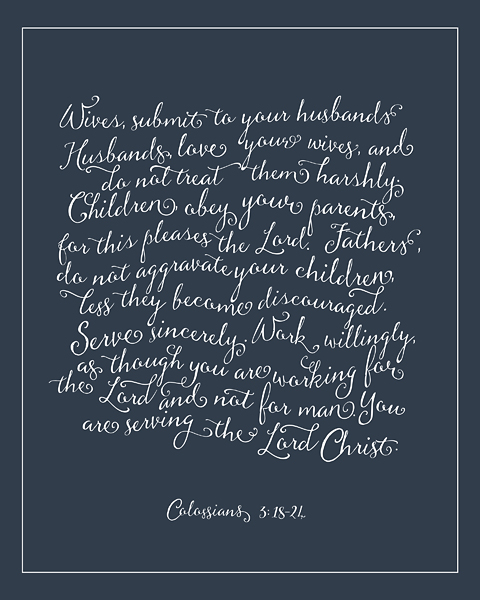 Wives, submit to your husbands
Husbands, love your wives, and
do not treat them harshly.
Children, obey your parents,
for this pleases the Lord. Fathers,
do not aggravate your children,
less they become discouraged.
Serve sincerely. Work willingly,
as though you are working for
the Lord and not for man. You
are serving the Lord Christ.
Colossians 3:18-24